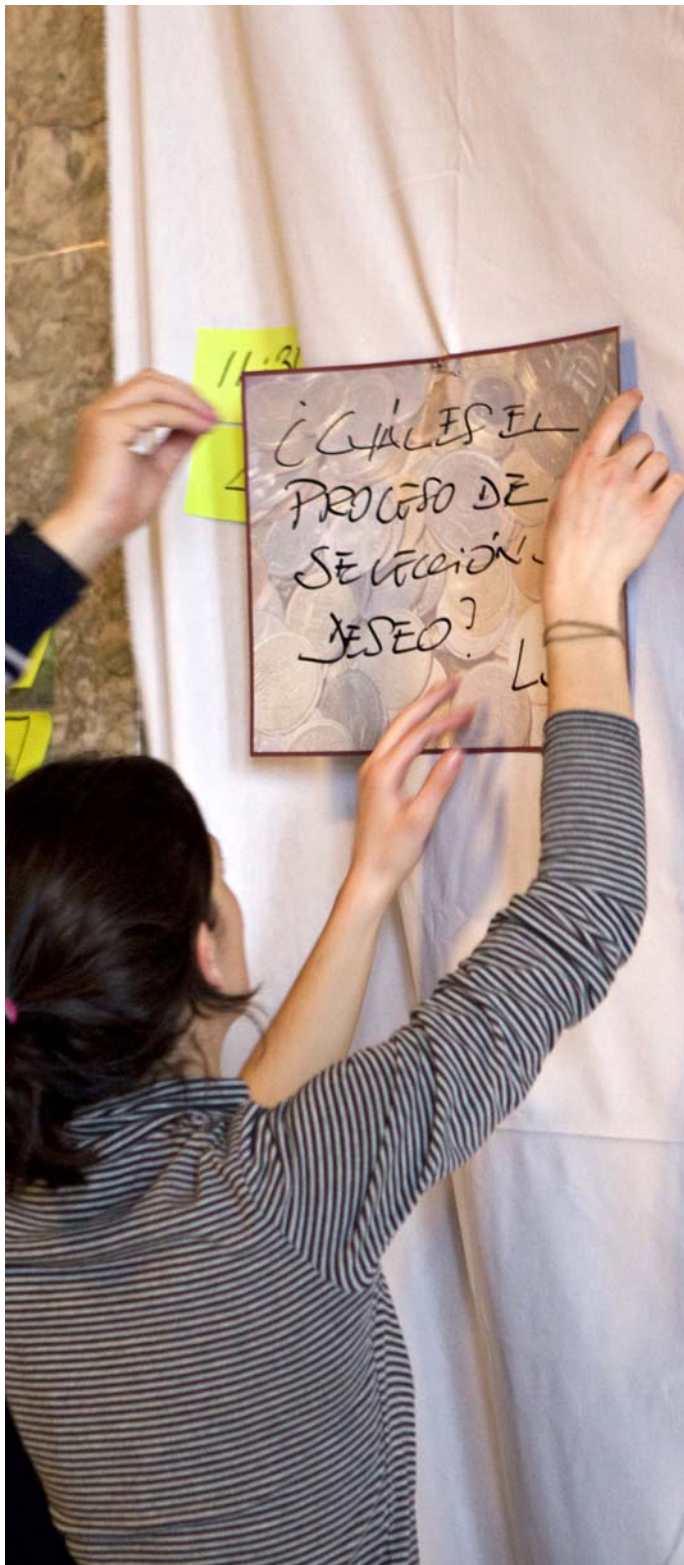 11:3
¿CUÁL ES EL
PROCESO DE
SELECCIÓN.
DESEO?